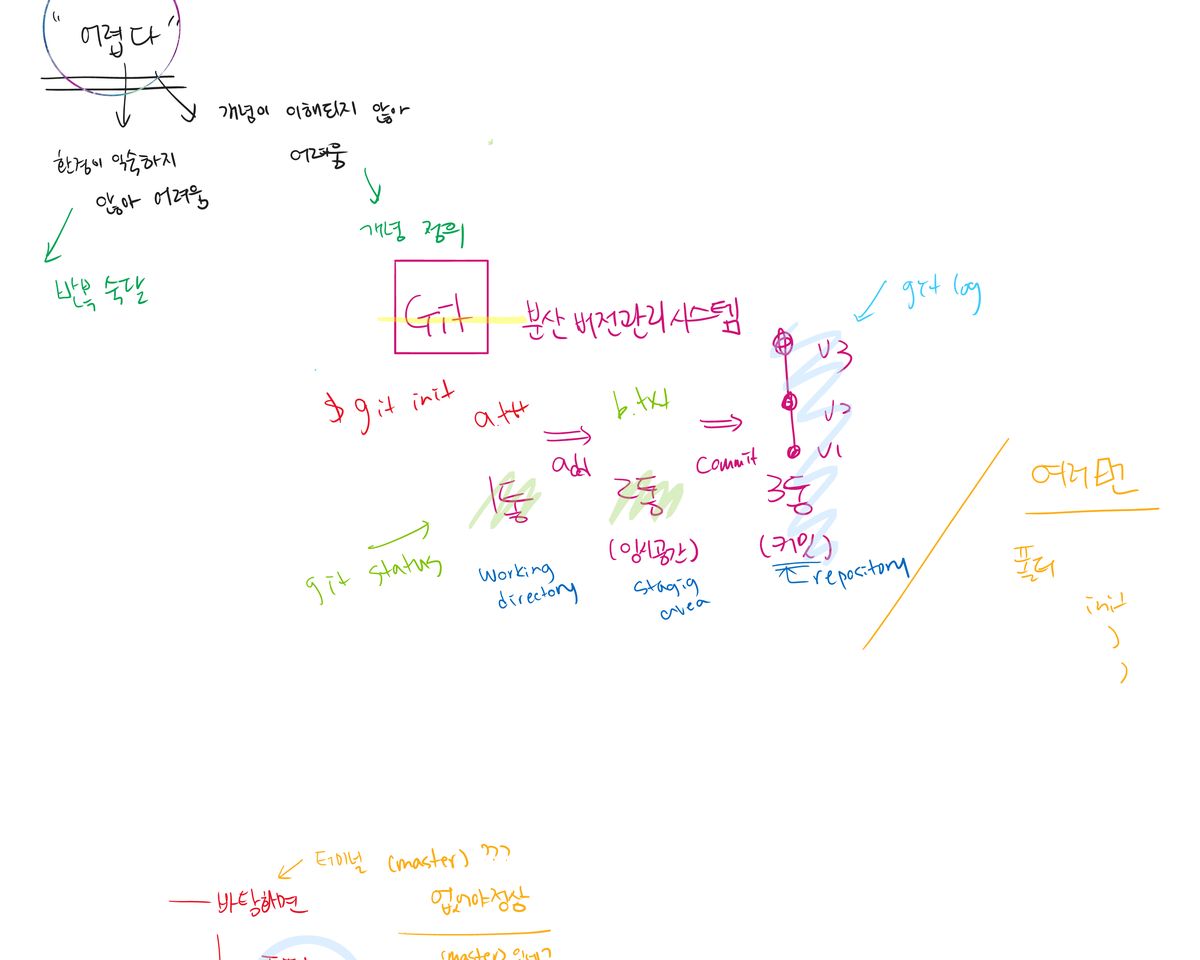 "어렵다"
개념이 이해되지 않아
어려움
환경이 익숙하지
않아 어려움
개념 정의
반복 숙달
Git 분산버전관리시스템
git log
v3
v2
v1
$ git init
a.txt
add
b.txt
commit
1통
2통
3통
(임시공간)
(커밋)
git status
working
directory
stagig
area
repository
여러번
폴더
init
)
)
터미널 (master) ???
바탕화면
없어야정상